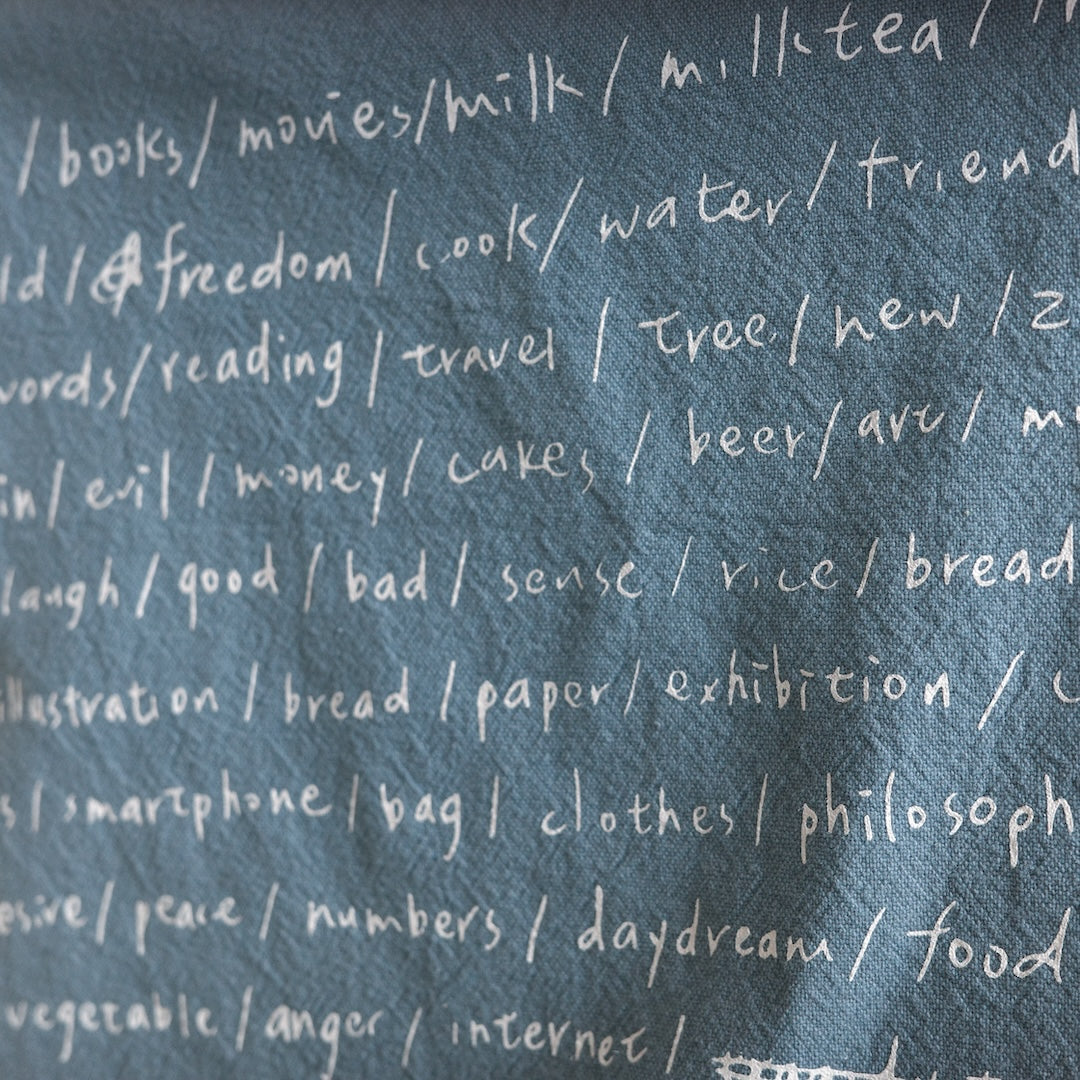 / books / movies / milk / milk tea /
/ freedom / cook / water / friend
words / reading / travel / tree / new /
/ evil / money / cakes / beer / art /
laugh / good / bad / sense / rice / bread
illustration / bread / paper / exhibition /
/ smartphone / bag / clothes / philosoph
/ peace / numbers / daydream / food
vegetable / anger / internet /